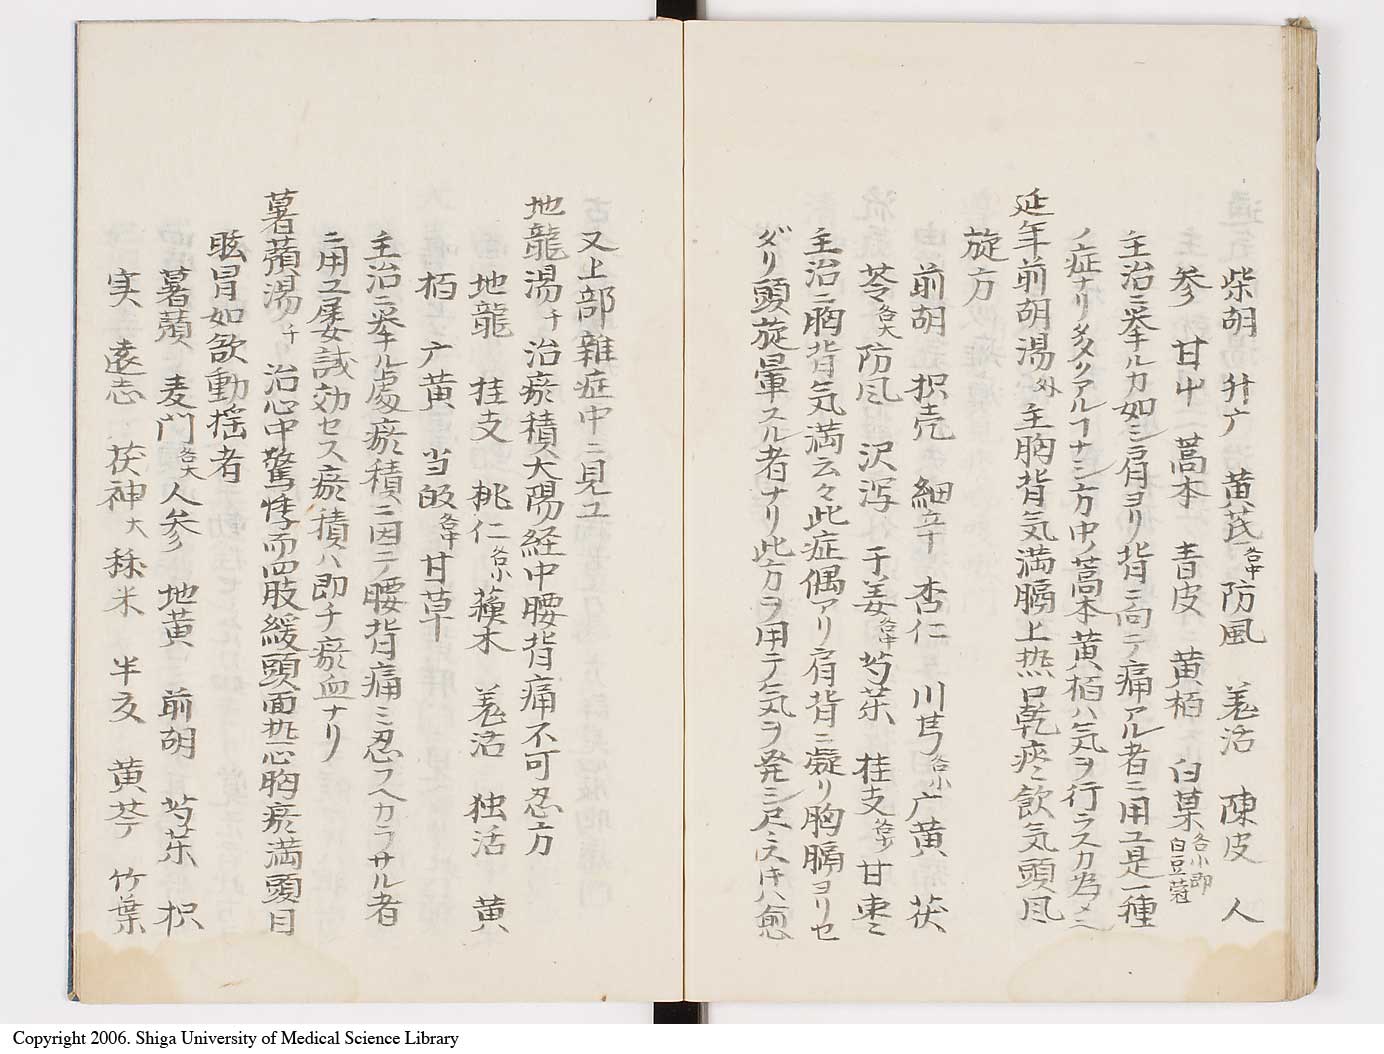 柴胡 升广 黄芪各中防風 羗活 陳皮 人
参 甘中 藁本 青皮 黄栢 白菓各小即白豆蔲
主治ニ挙ルカ如ミ肩ヨリ背ニ向テ痛アル者ニ用ユ是一種
ノ症ナリ多クアルフナシ方中ノ藁本黄栢ハ気ヲ行ラスカ為メヘ
延年前胡湯外主胸背気満膈上热口乾痰飲気頭风
旋方
前胡 枳壳 細辛 杏仁 川芎各小广黄 茯
苓各大防风 沢泻 干姜各中芍薬 桂支各少甘枣ミ
主治ニ胸背気満云々此症偶アリ肩背ニ凝リ胸膈ヨリセ
ダリ頭旋暈スル者ナリ此方ヲ用テ気ヲ発
又上部雜症中ニ見ユ
地龍湯千治瘀積大陽経中腰背痛不可忍方
地龍 桂支 桃仁各小蘓木 羗活 独活 黄
栢 广黄 当皈各中甘草
主治ニ挙ル處瘀積ニ因テ腰背痛ミ忍フヘカラサル者
ニ用ユ屡誠効セス瘀積ハ即チ瘀血ナリ
薯蕷湯千 治心中驚悸而四肢緩頭面热心胸痰満頭目
眩冒如欲動揺者
薯蕷 麦門各大人参 地黄 前胡 芍薬 枳
実 遠志 茯神大秫米 半夏 黄芩 竹葉
Copyright 2006. Shiga University of Medical Science Library